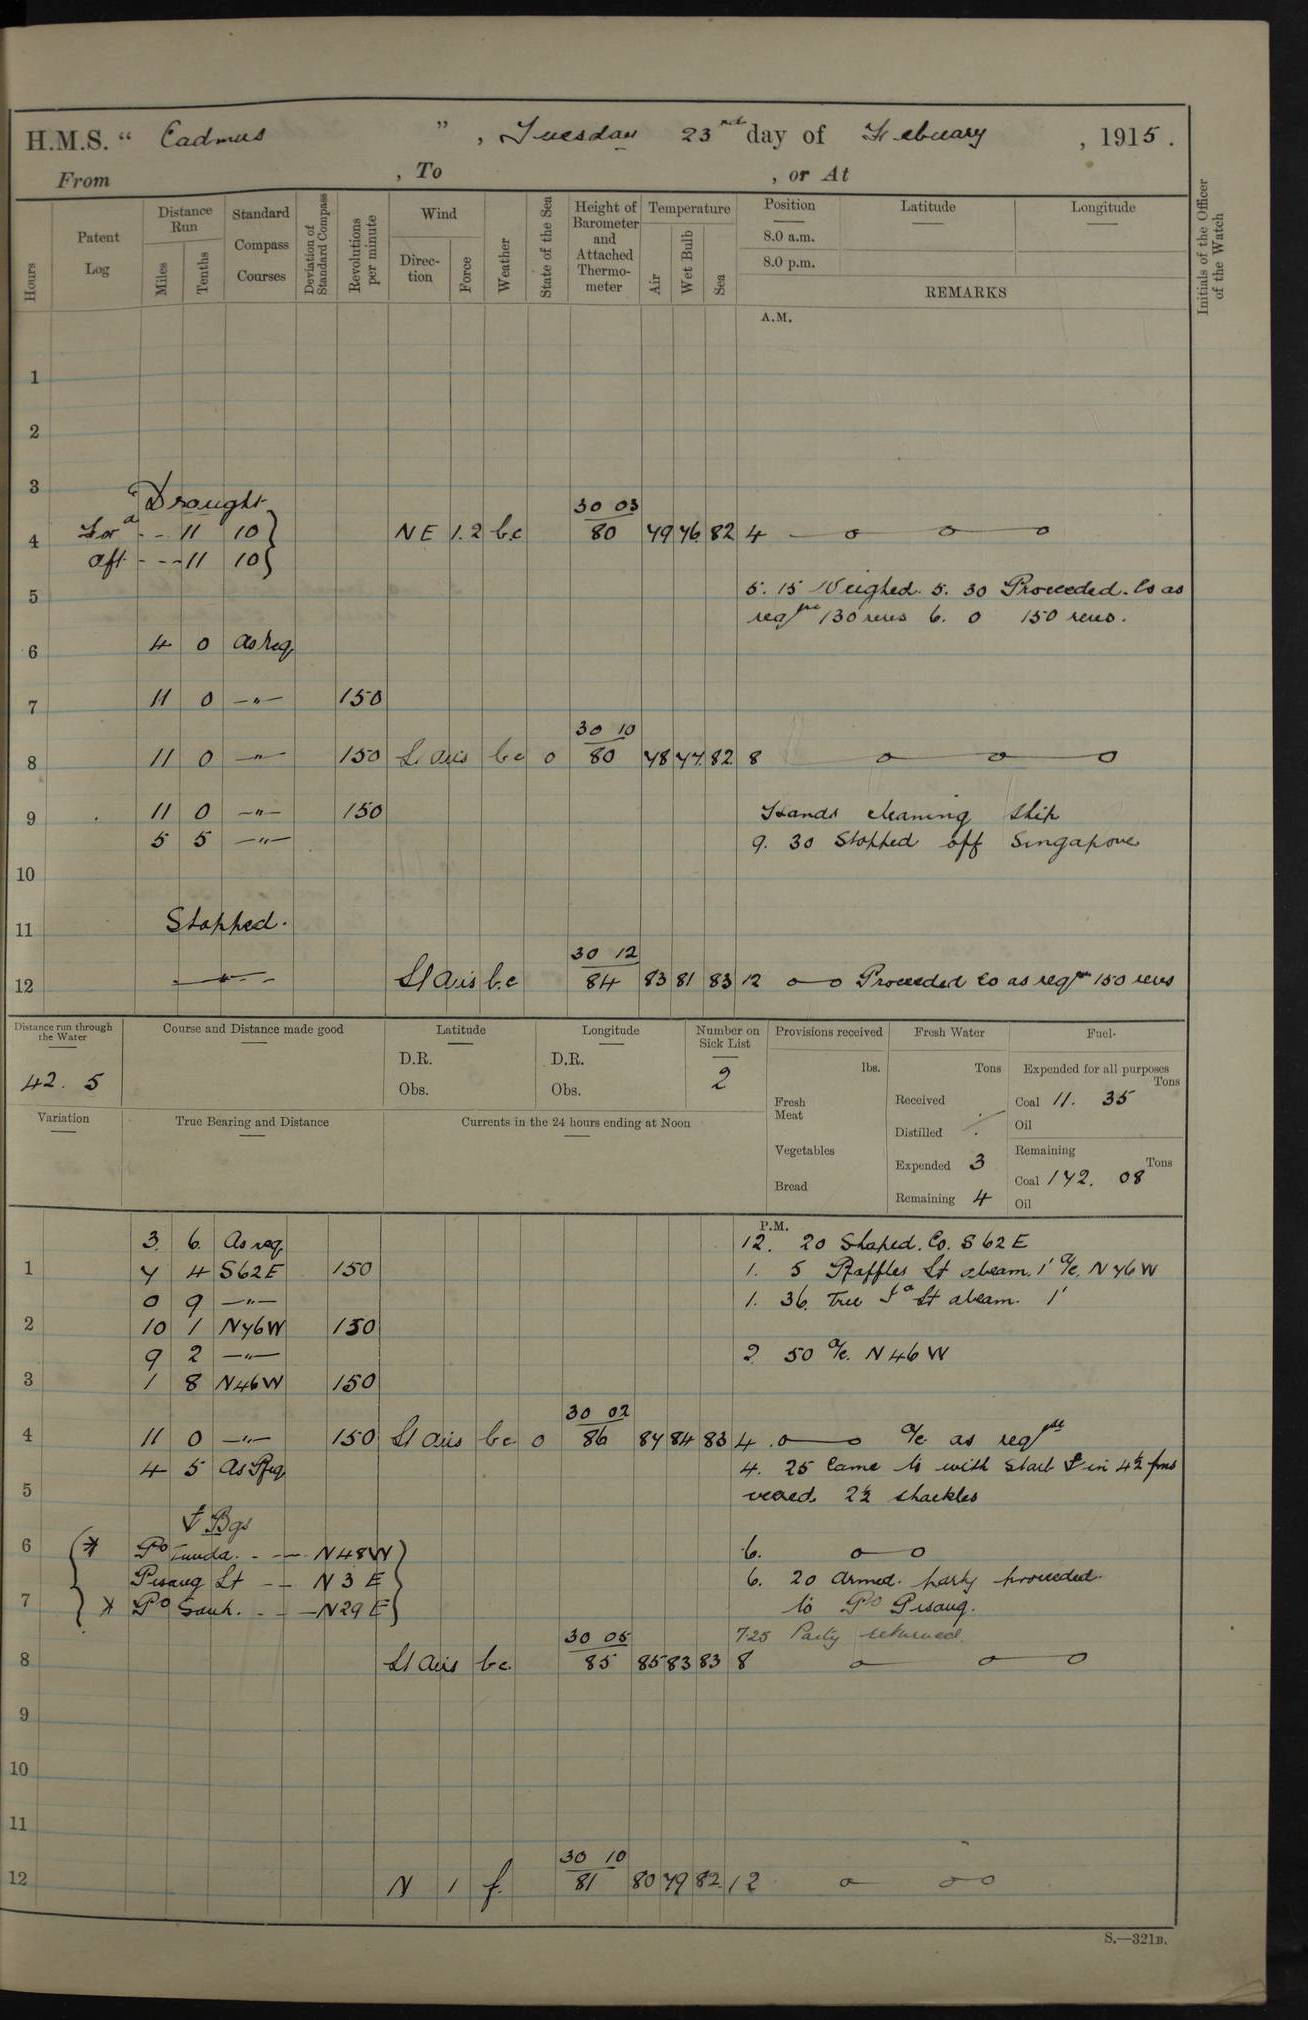 H.M.S. “ Cadmus ” , Tuesday 23rd day of Febuary , 1915 .
From , To , or At
Hours
Patent Log
Distance Run
Miles
Tenths
Standard Compass Courses
Deviation of Standard Compass
Revolutions per minute
Wind
Direc-tion
Force
Weather
State of the Sea
Height of Barometer and Attached Thermo-meter
Temperature
Air
Wet Bulb
Sea
Position
8.0 a.m.
8.0 p.m.
Latitude
Longitude
REMARKS
Initials of the Officer of the Watch
A.M.
1
2
3
Draught
30 03
4 For'd - - 11 10 } NE 1.2 b.c 80 79 76 82 4
aft - - - 11 10 }
5 5. 15 Weighed. 5. 30 Proceeded. Co as
req 130 revs 6. 0 150 revs.
6 4 0 as req
7 11 0 —"— 150
30 10
8 11 0 —"— 150 Lt airs bc 0 80 78 77 82 8
9 11 0 —"— 150 Hands cleaning ship
5 5 —"— 9. 30 Stopped off Singapore
10
11 Stopped.
30 12
12 —"— Lt airs b.c 84 83 81 83 12 Proceeded Co as req 150 revs
Distance run through the Water
42. 5
Course and Distance made good
Latitude
D.R.
Obs.
Longitude
D.R.
Obs.
Number on Sick List
2
Provisions received
lbs.
Fresh Meat
Vegetables
Bread
Fresh Water
Tons
Received
Distilled
Expended 3
Remaining 4
Fuel-
Expended for all purposes
Tons
Coal 11. 35
Oil
Remaining
Tons
Coal 172. 08
Oil
Variation
True Bearing and Distance
Currents in the 24 hours ending at Noon
P.M.
3. 6. As req 12. 20 Shaped. Co. S 62 E
1 7 4 S62E 150 1. 5 Raffles Lt abeam. 1' a/c. N 76 W
0 9 —"— 1. 36. Lt abeam. 1'
2 10 1 N76W 150
9 2 —"— 2 50 a/c. N 46 W
3 1 8 N46W 150
30 02
4 11 0 —"— 150 Lt airs bc 0 86 87 84 83 4. a/c as req
4 5 As Req 4. 25 Came to with Starb in 4½ fms
5 veered. 2½ shackles
Bgs
6 * Po . - — N48W 6.
Pisang Lt - — N 3 E 6. 20 Armed. party proceeded
7 * Po . - — N29E to Po Pisang.
30 05 7.25 Party returned.
8 Lt airs bc. 85 85 83 83 8
9
10
11
30 10
12 N 1 f. 81 80 79 82. 12
S.—321B.